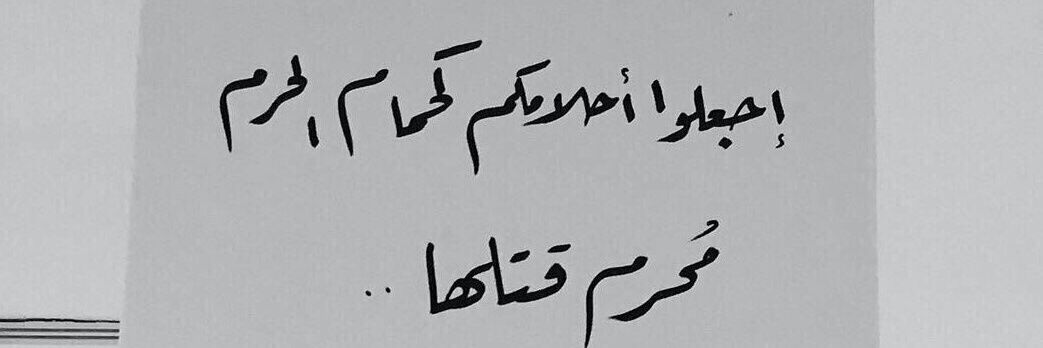 إجعلوا أحلامكم كحمام الحرم
مُحرم قتلها ..